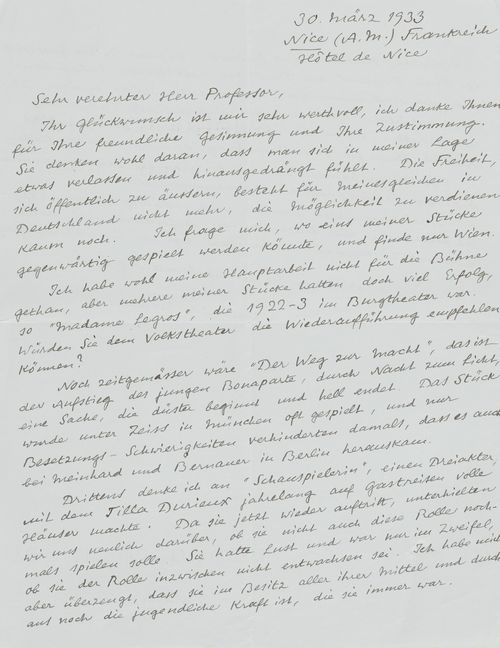 30. März 1933
Nice (A.M.) Frankreich
Hôtel de Nice
Sehr verehrter Herr Professor,
Ihr Glückwunsch ist mir sehr werthvoll, ich danke Ihnen
für Ihre freundliche Gesinnung und Ihre Zustimmung.
Sie denken wohl daran, dass man sich in meiner Lage
etwas verlassen und hinausgedrängt fühlt. Die Freiheit,
sich öffentlich zu äussern, besteht für meinesgleichen in
Deutschland nicht mehr, die Möglichkeit zu verdienen
kaum noch. Ich frage mich, wo eins meiner Stücke
gegenwärtig gespielt werden könnte, und finde nur Wien.
Ich habe wohl meine Hauptarbeit nicht für die Bühne
gethan, aber mehrere meiner Stücke hatten doch viel Erfolg,
so "Madame Legros", die 1922-3 im Burgtheater war.
Würden Sie dem Volkstheater die Wiederaufführung empfehlen
können?
Noch zeitgemässer wäre "Der Weg zur Macht", das ist
der Aufstieg des jungen Bonaparte, durch Nacht zum Licht,
eine Sache, die düster beginnt und hell endet. Das Stück
wurde unter Zeiss in München oft gespielt, und nur
Besetzungs-Schwierigkeiten verhinderten damals, dass es auch
bei Meinhard und Bernauer in Berlin herauskam.
Drittens denke ich an "Schauspielerin", einen Dreiakter,
mit dem Tilla Durieux jahrelang auf Gastreisen volle
Häuser machte. Da sie jetzt wieder auftritt, unterhielten
wir uns neulich darüber, ob sie nicht auch diese Rolle noch-
mals spielen solle. Sie hatte Lust und war nur im Zweifel,
ob sie der Rolle inzwischen nicht entwachsen sei. Ich habe mich
aber überzeugt, dass sie im Besitz aller ihrer Mittel und durch-
aus noch die jugendliche Kraft ist, die sie immer war.